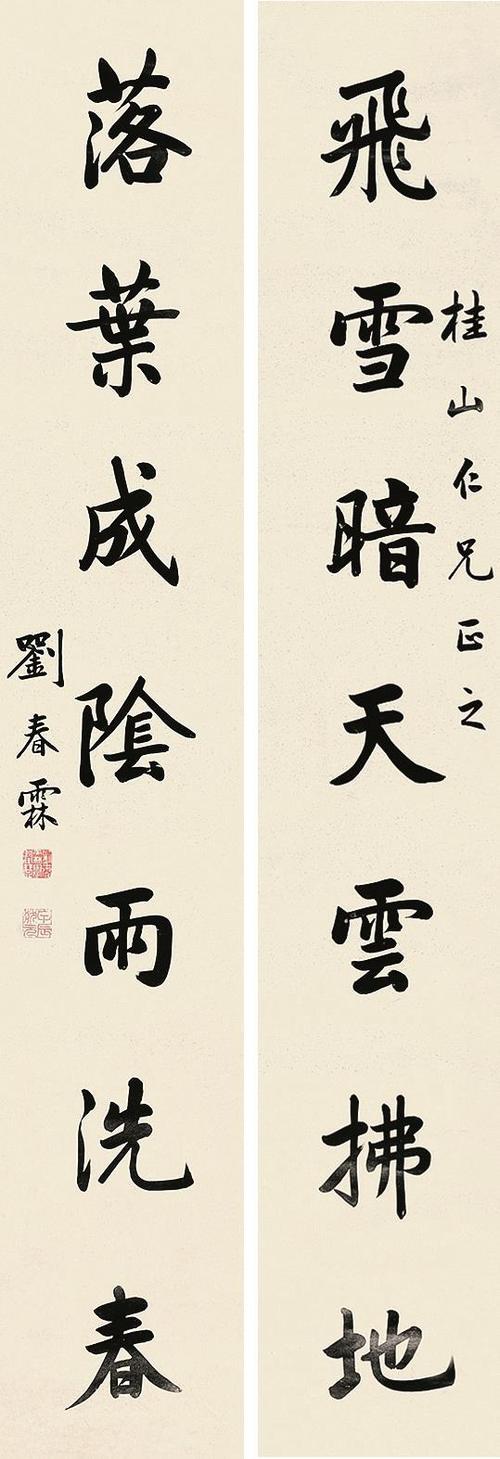 桂山仁兄正之
飛雪暗天雲拂地
落葉成陰雨洗春
劉春霖